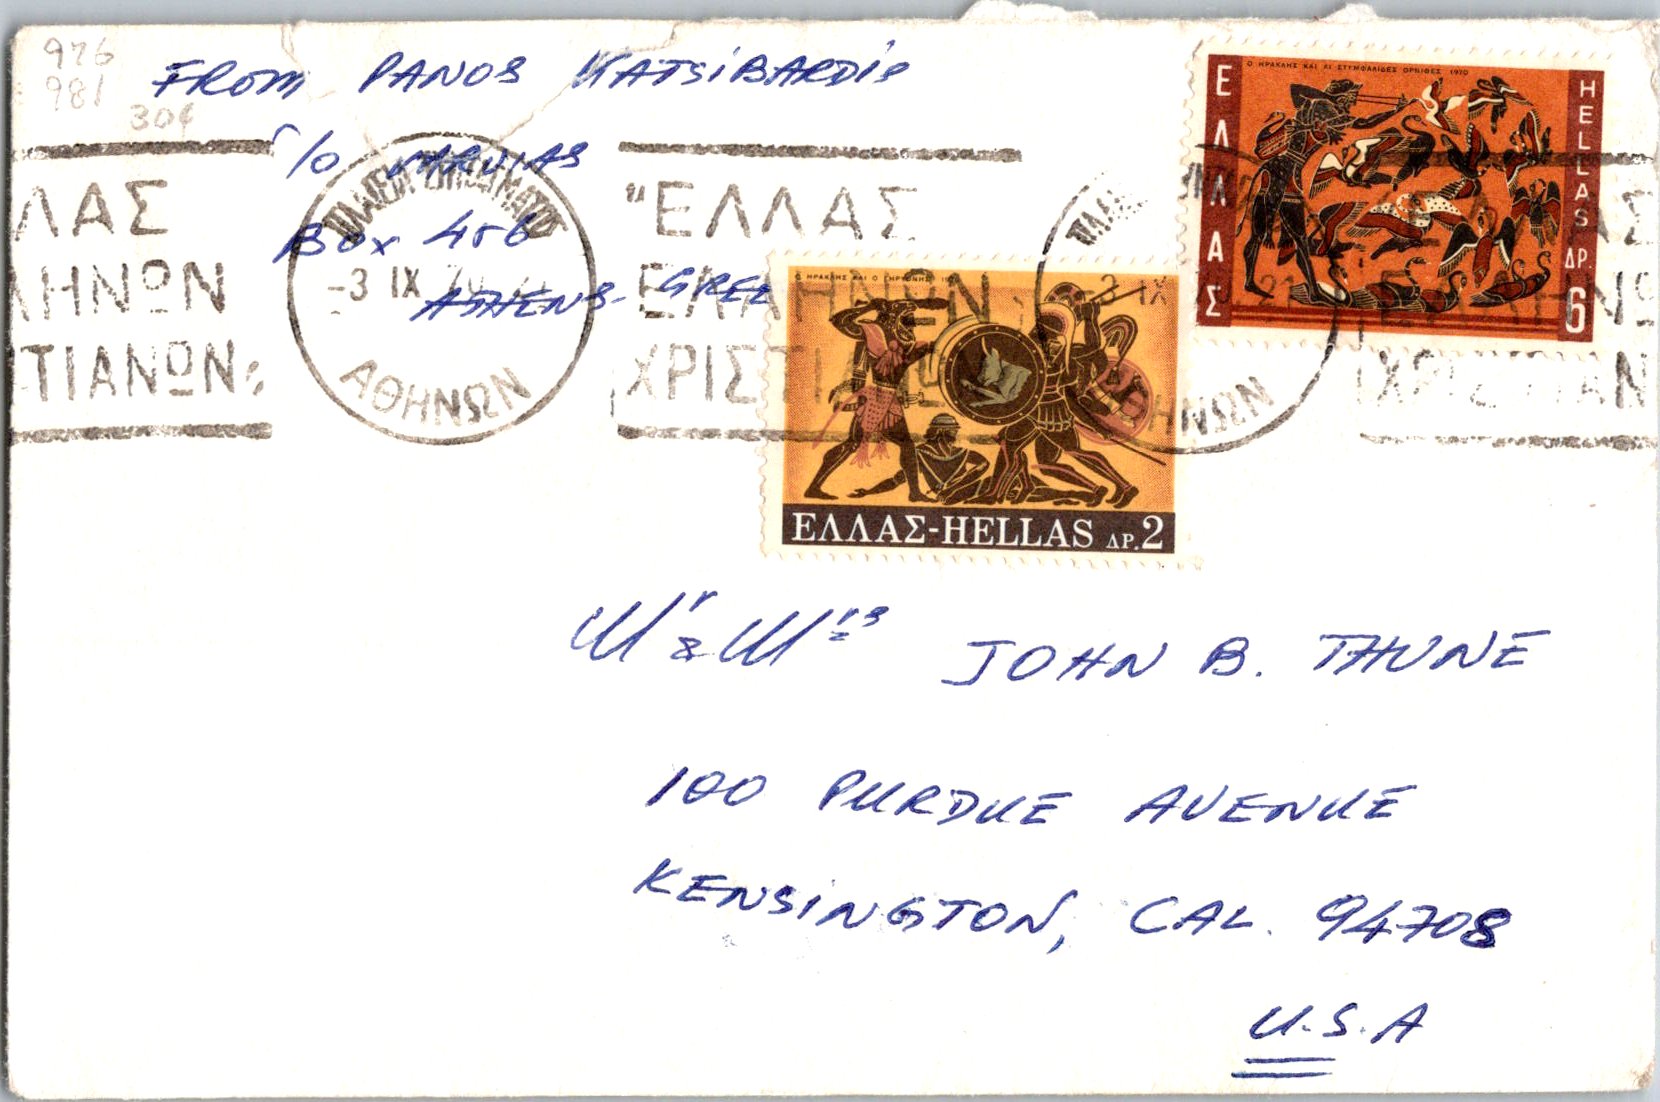 976
981
30¢
FROM PANOS KATSIBARDIS
C/O
BOX 456
ATHENS - GREE
ΛΑΣ
ΛΗΝΩΝ
ΤΙΑΝΩΝ"
ΠΛΑΤΕΙΑ ΣΥΝΤΑΓΜΑΤΟΣ
-3 IX 70 21
ΑΘΗΝΩΝ
"ΕΛΛΑΣ
ΕΛΛΗΝΩΝ
ΧΡΙΣΤΙΑΝΩΝ
3 IX 21
ΑΘΗΝΩΝ
ΑΣ
ΕΛΛΗΝΩ
ΧΡΙΣΤΙΑΝ
Ο ΗΡΑΚΛΗΣ ΚΑΙ ΑΙ ΣΤΥΜΦΑΛΙΔΕΣ ΟΡΝΙΘΕΣ 1970
ΕΛΛΑΣ
HELLAS
ΔΡ. 6
Ο ΗΡΑΚΛΗΣ ΚΑΙ Ο ΓΗΡΥΟΝΗΣ
ΕΛΛΑΣ-HELLAS ΔΡ.2
Mr & Mrs JOHN B. THUNE
100 PURDUE AVENUE
KENSINGTON, CAL. 94708
U.S.A